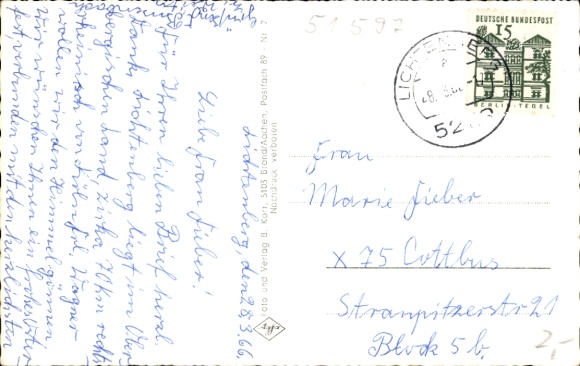 51 597
DEUTSCHE BUNDESPOST
15
BERLIN-TEGEL
LICHTENBERG
Frau
Marie Fieber
X 75 Cottbus
Stranpitzerstr 21
Block 5b.
2,-
Foto und Verlag B. Korr, 5105 Brand/Aachen, Postfach 89
Nachdruck verboten
Lichtenberg, den 28.3.66.
Liebe Frau Fieber!
Für Ihren lieben Brief herzl.
Dank. Lichtenberg liegt im Ober
bergischen Land zirka 70 km rechts
rheinisch von Köln. Frl. Wagner
wollen wir den Himmel gönnen.
Wir wünschen Ihnen ein frohes Oster
fest, verbunden mit den herzlichsten